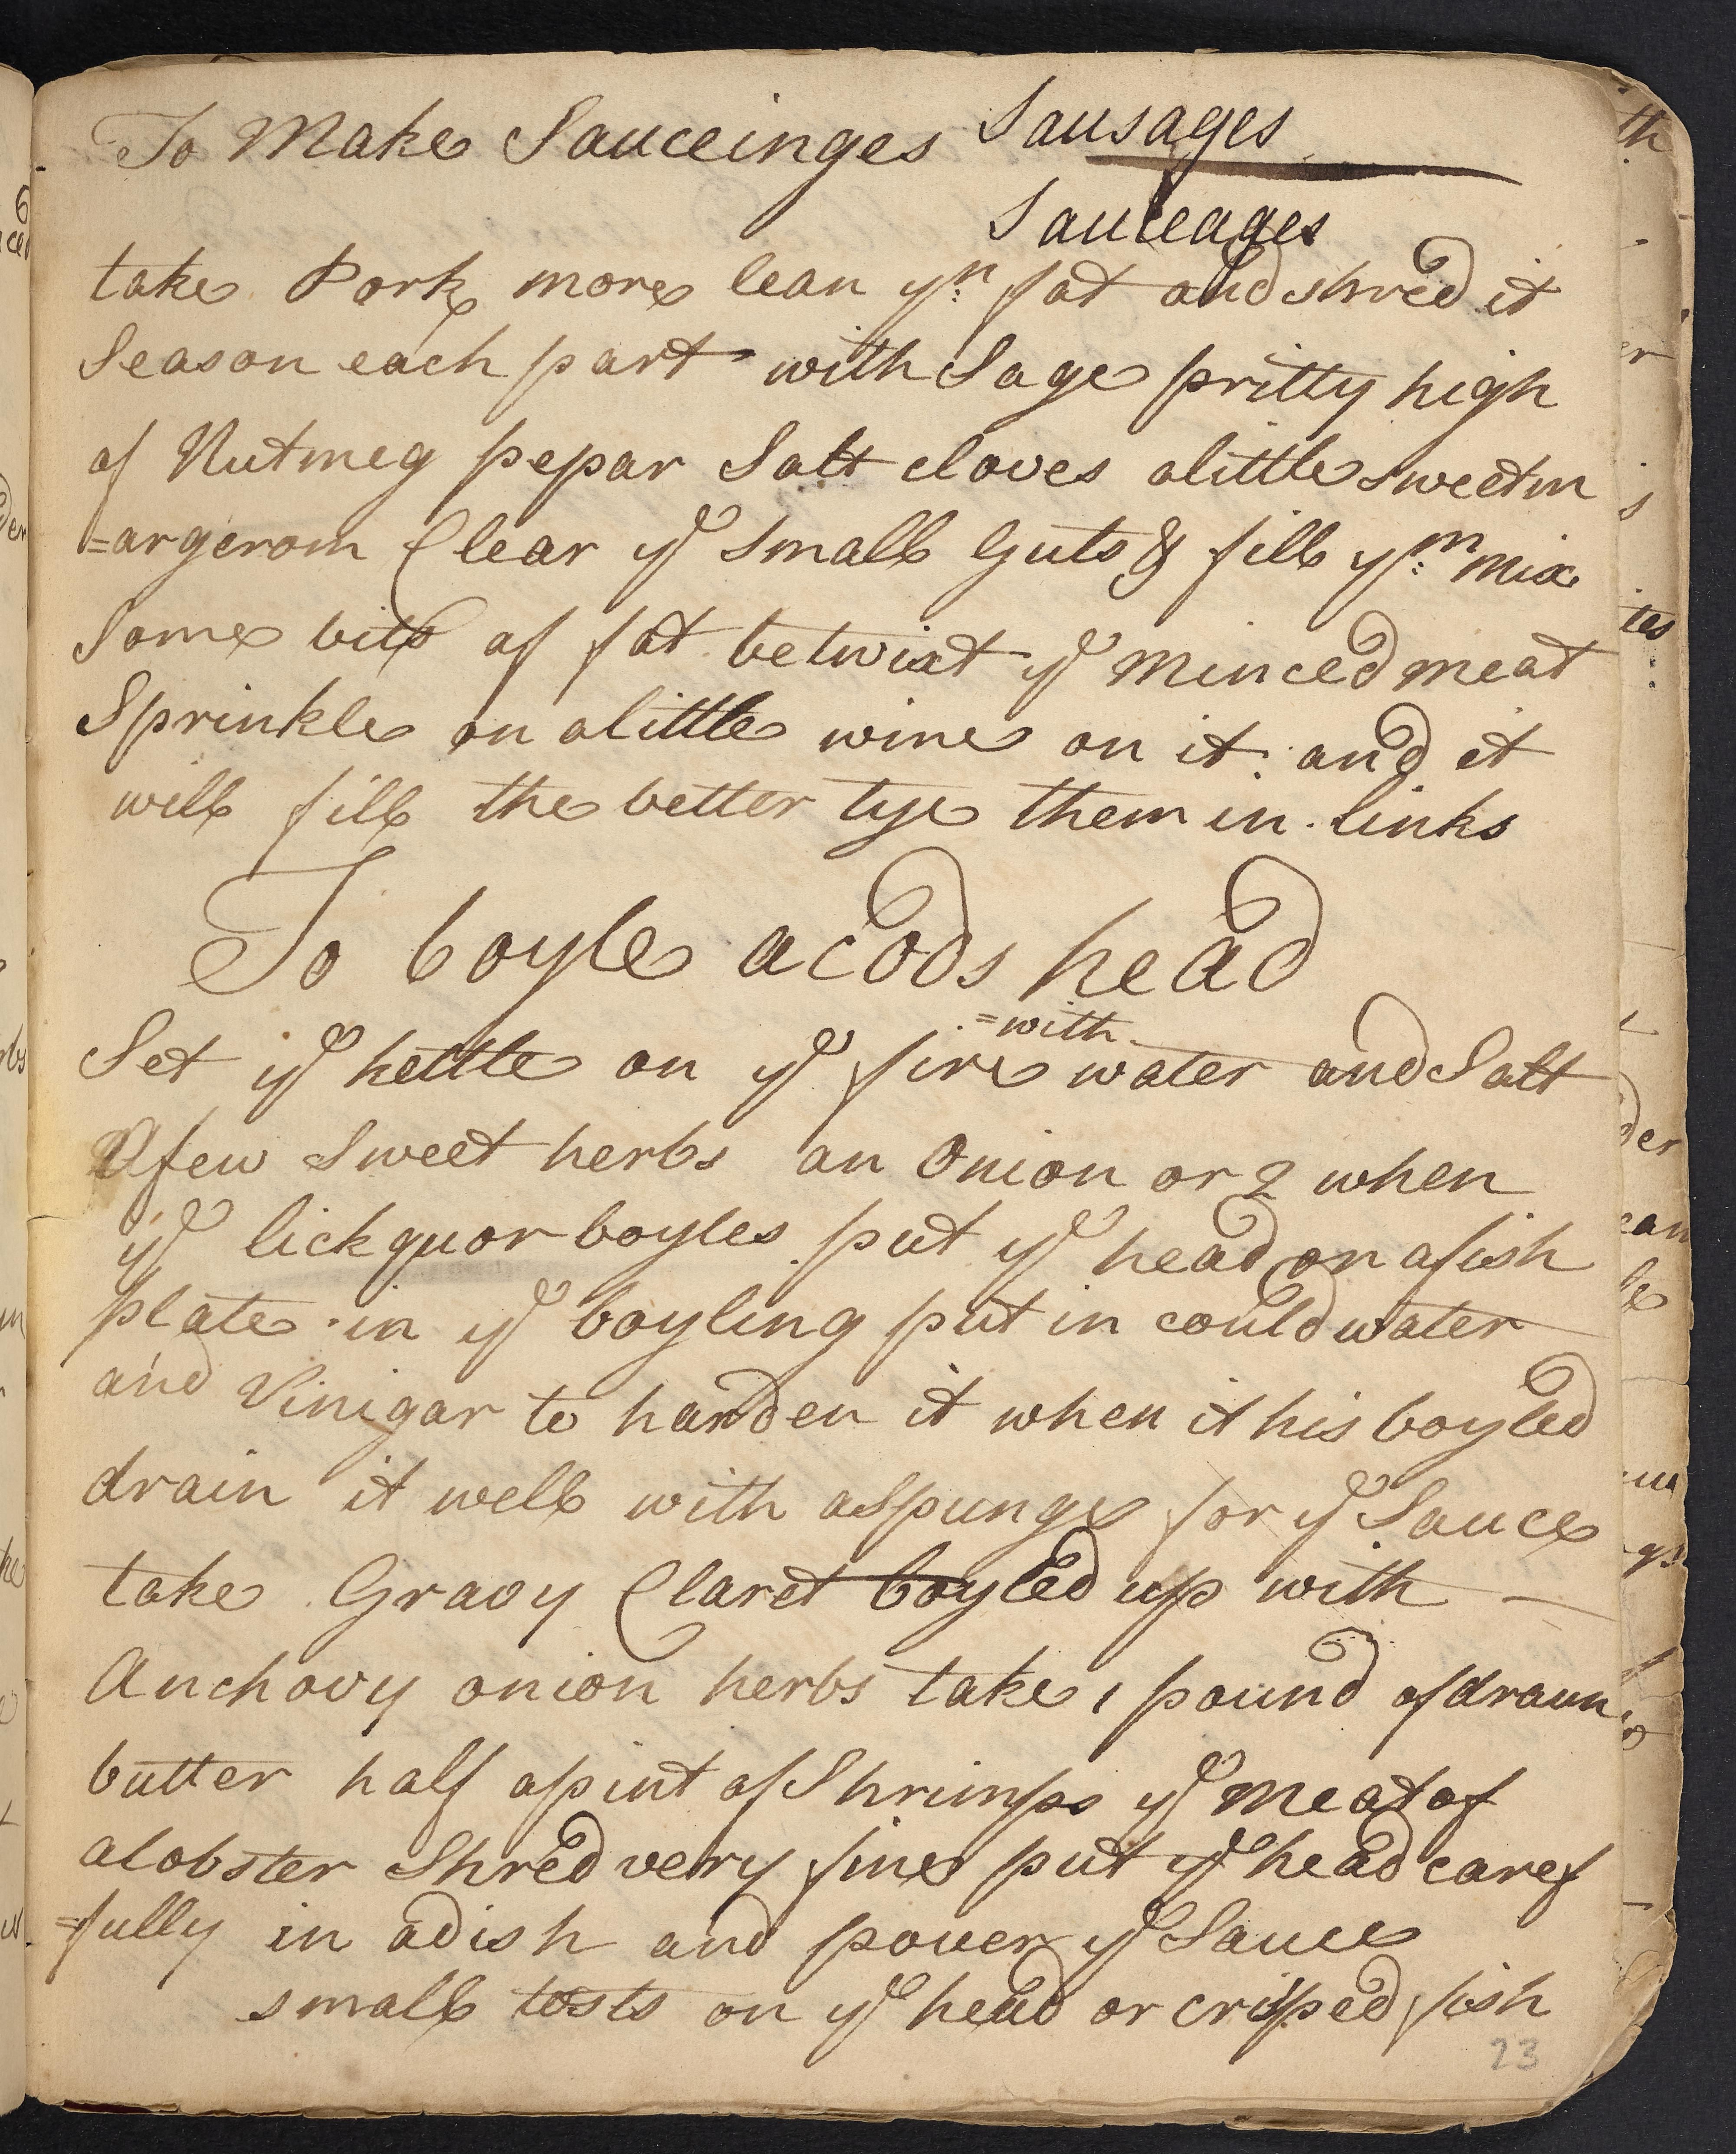 To Make Sauceinges Sausages
Sauceages
take Pork more lean yn: fat and shred it
Season each part with Sage pritty high
of Nutmeg pepar Salt cloves alittle sweetm
=argerom Clear ye Small Guts & fill ym: mix
Some bits of fat betwixt ye minced meat
Sprinkle on alittle wine on it: and it
will fill the better tye them in links
To boyle a cods head
=with
Set ye kettle on ye fire water and Salt
Afew Sweet herbs an Onion or 2 when
ye lickquor boyles put ye head on afish
plate in ye boyling put in could water
and Vinigar to harden it when it his boyled
drain it well with aSpunge for ye Sauce
take Gravy Claret boyled up with —
Anchovy onion herbs take 1 pound of draun
butter half apint of Shrimps ye meat of
alobster Shred very fine put ye head caref
=fully in adish and pouer ye Sauce
small tosts on ye head or crisped fish
23